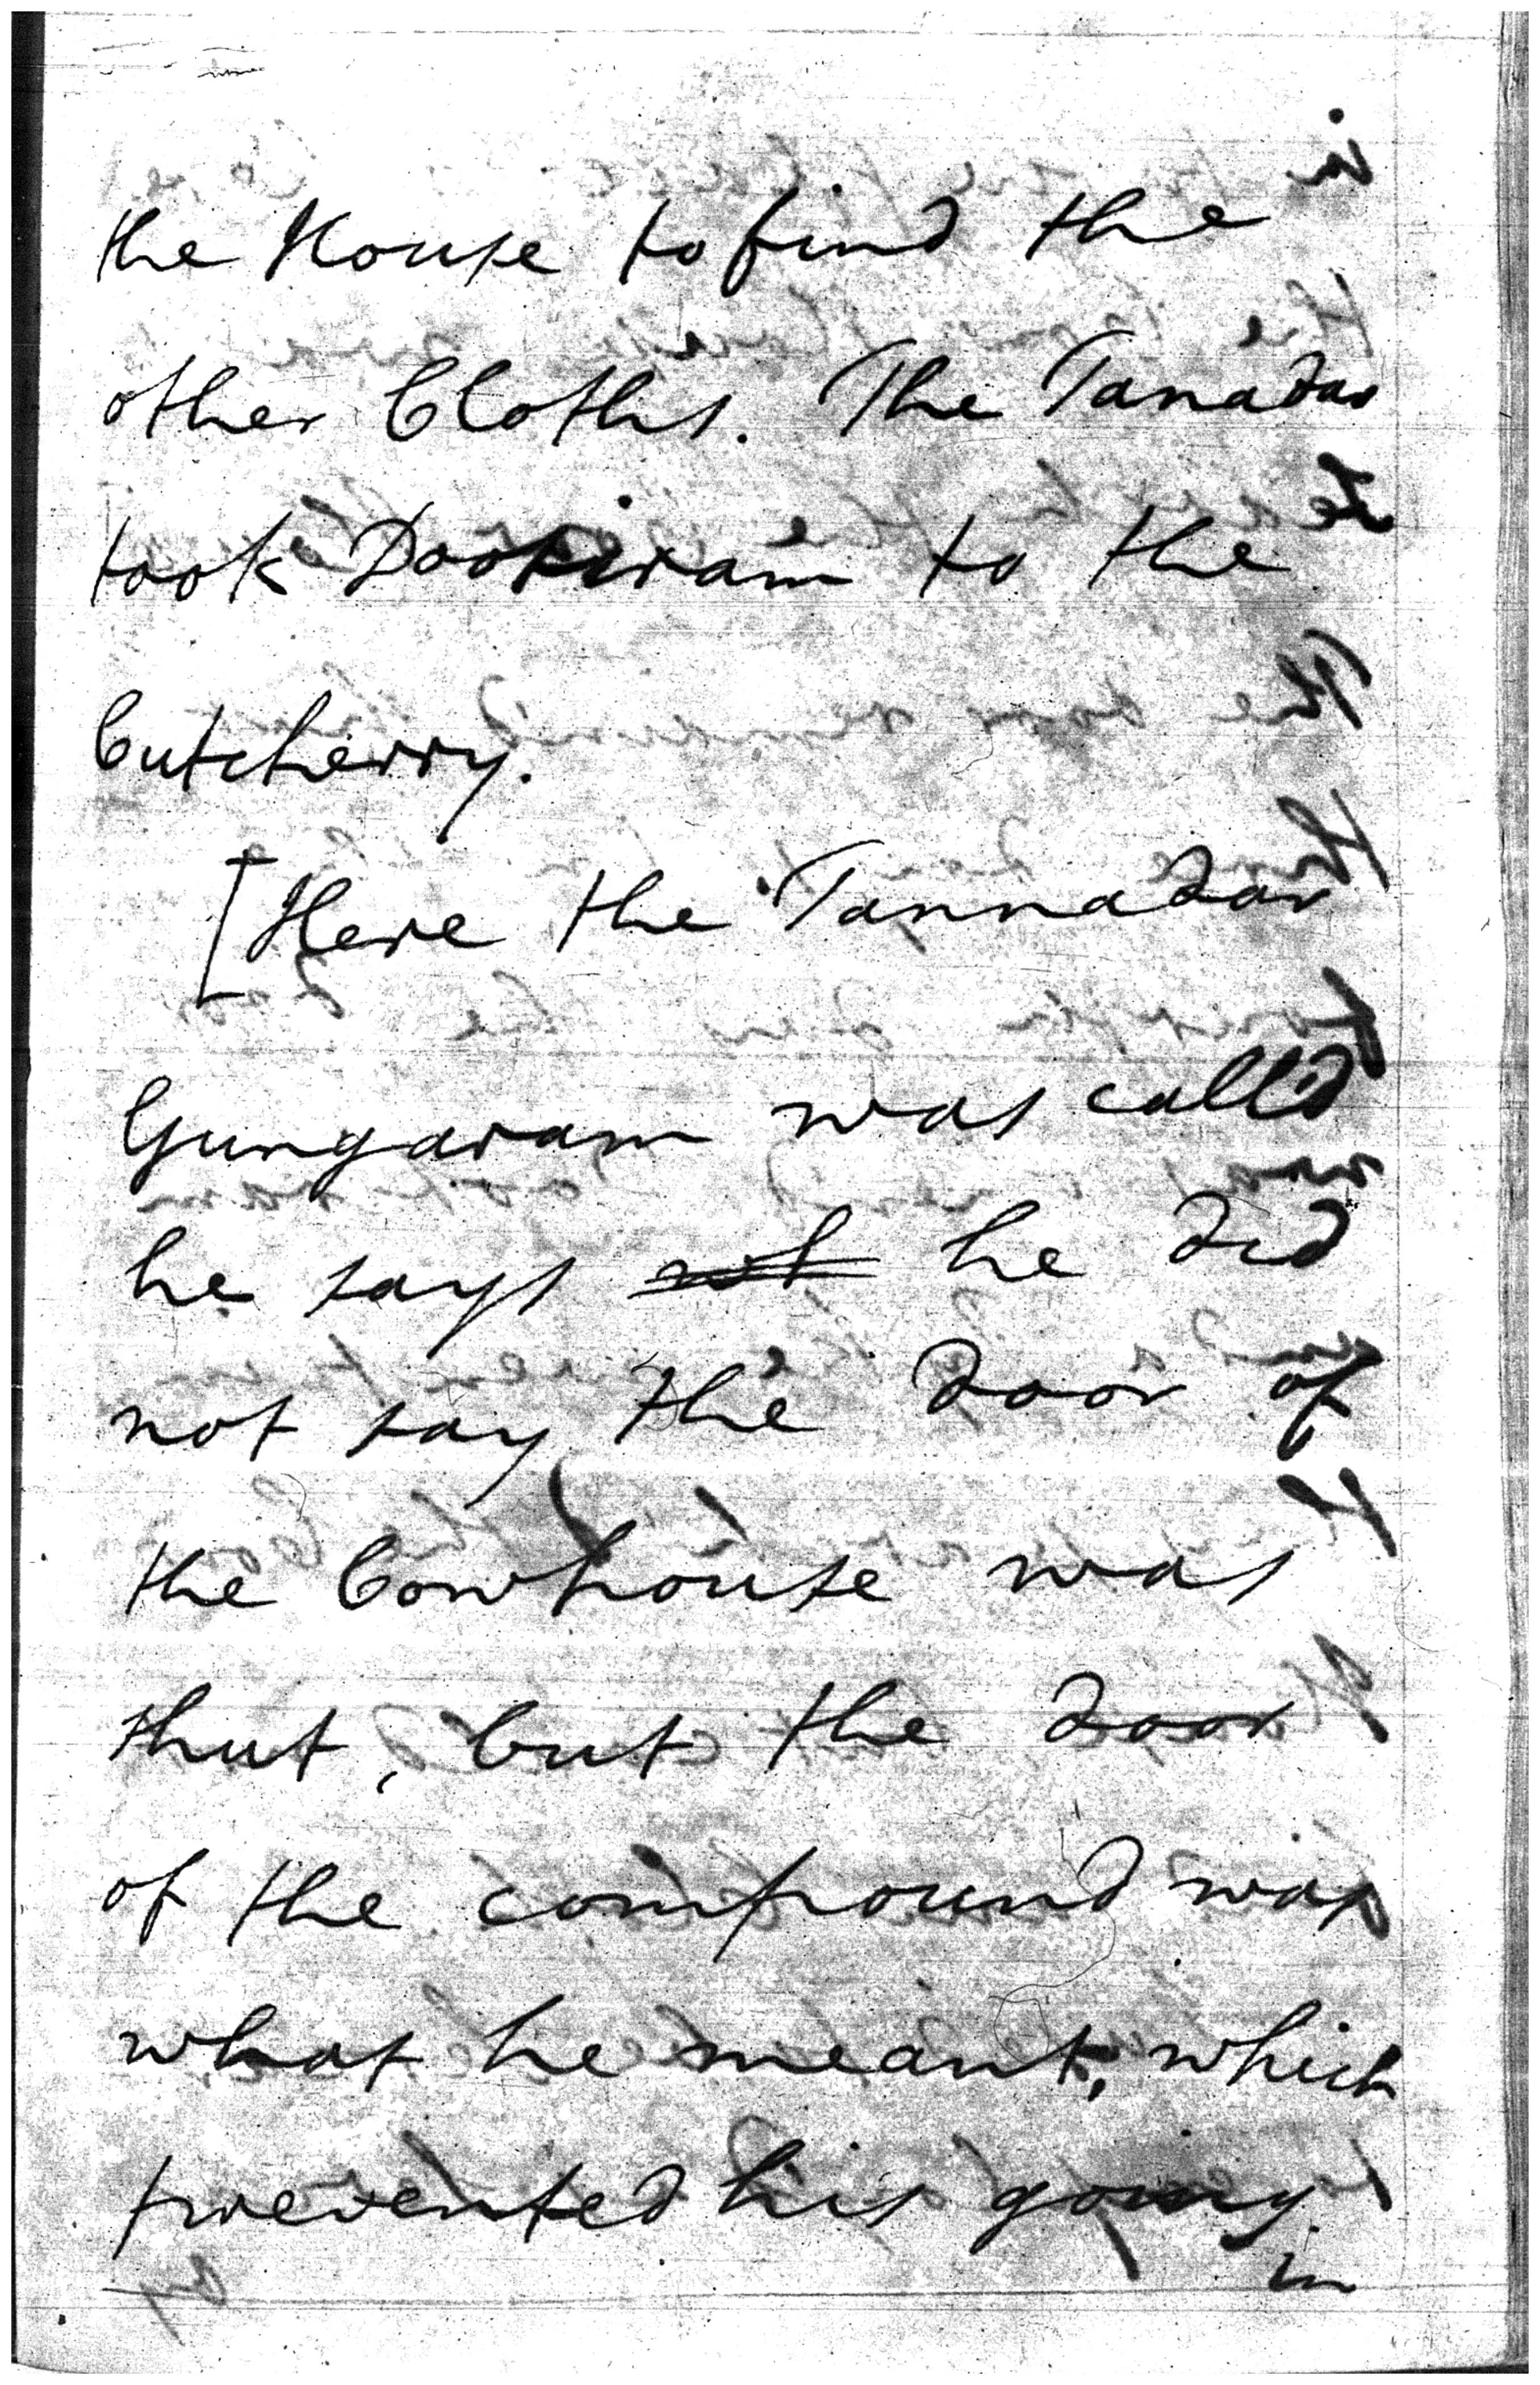 the House to find the
other Cloths. The Tanadar
took Dookiram to the
Cutcherry.
[Here the Tannadar
Gungaram was call'd
he says not he did
not say the door of
the Cowhouse was
shut, but the door
of the compound was
what he meant, which
prevented his going
in